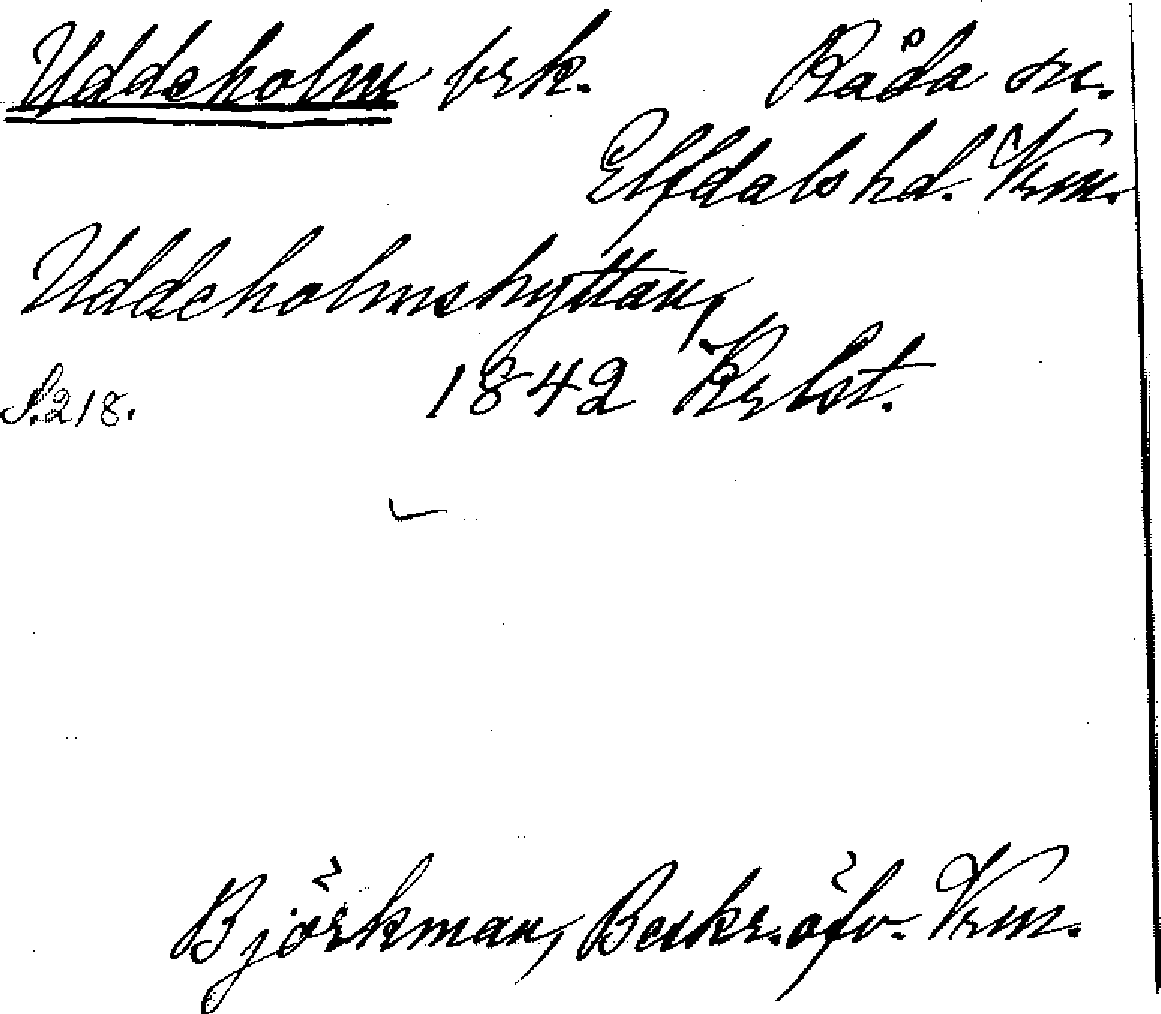 Uddeholm brk. Råda sn.
Elfdals hd. Vrm.
Uddeholmshyttan,
S. 218. 1842 Krlst.
Björkman, Beskr. öfv. Vrm.